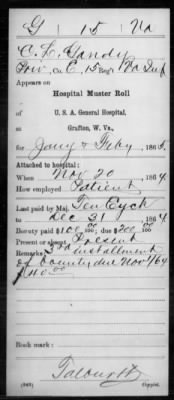 G 15 Va
C. L. Gandy
Priv, Co. E, 15 Reg't Va Inf
Appears on
Hospital Muster Roll
of
U. S. A. General Hospital,
at
Grafton, W. Va.,
for Jany & Feby, 1865.
Attached to hospital:
When Nov 20, 1864.
How employed Patient
Last paid by Maj. Ten Eyck
to Dec 31, 1864
Bounty paid $100 00/100; due $200 00/100
Present or absent Present
Remarks: 3rd installment
of bounty due Nov 1/64
$40.00
Book mark:
(565) Copyist.